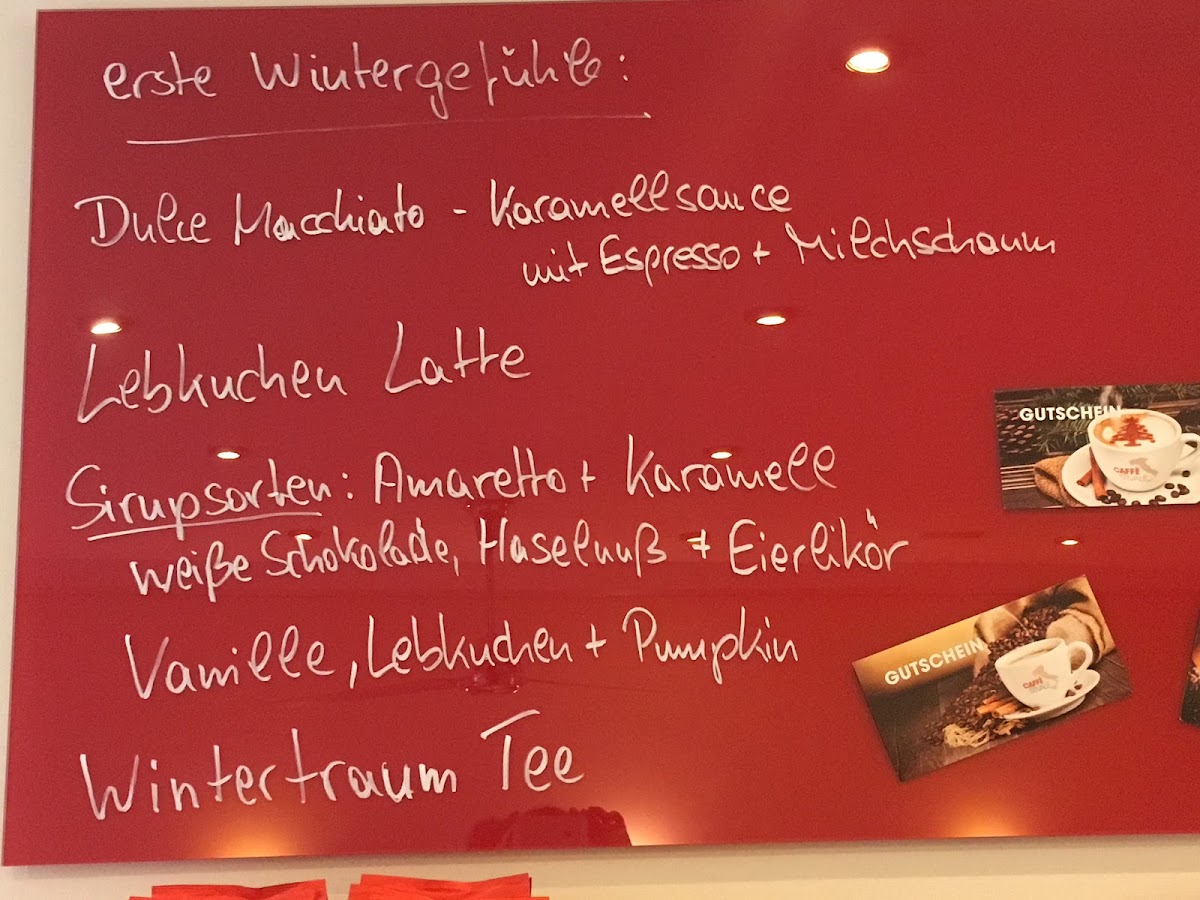 erste Wintergefühle:
Dulce Macchiato - Karamellsauce
mit Espresso + Milchschaum
Lebkuchen Latte
Sirupsorten: Amaretto + Karamell
weiße Schokolade, Haselnuß + Eierlikör
Vanille, Lebkuchen + Pumpkin
Wintertraum Tee
GUTSCHEIN
CAFFÈ
GUTSCHEIN
CAFFÈ